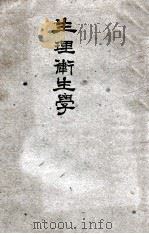 生理衛生學
mtoou.info